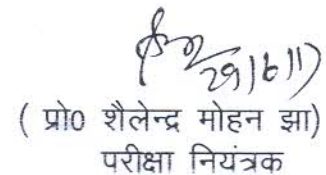 29/6/17
( प्रो0 शैलेन्द्र मोहन झा)
परीक्षा नियंत्रक